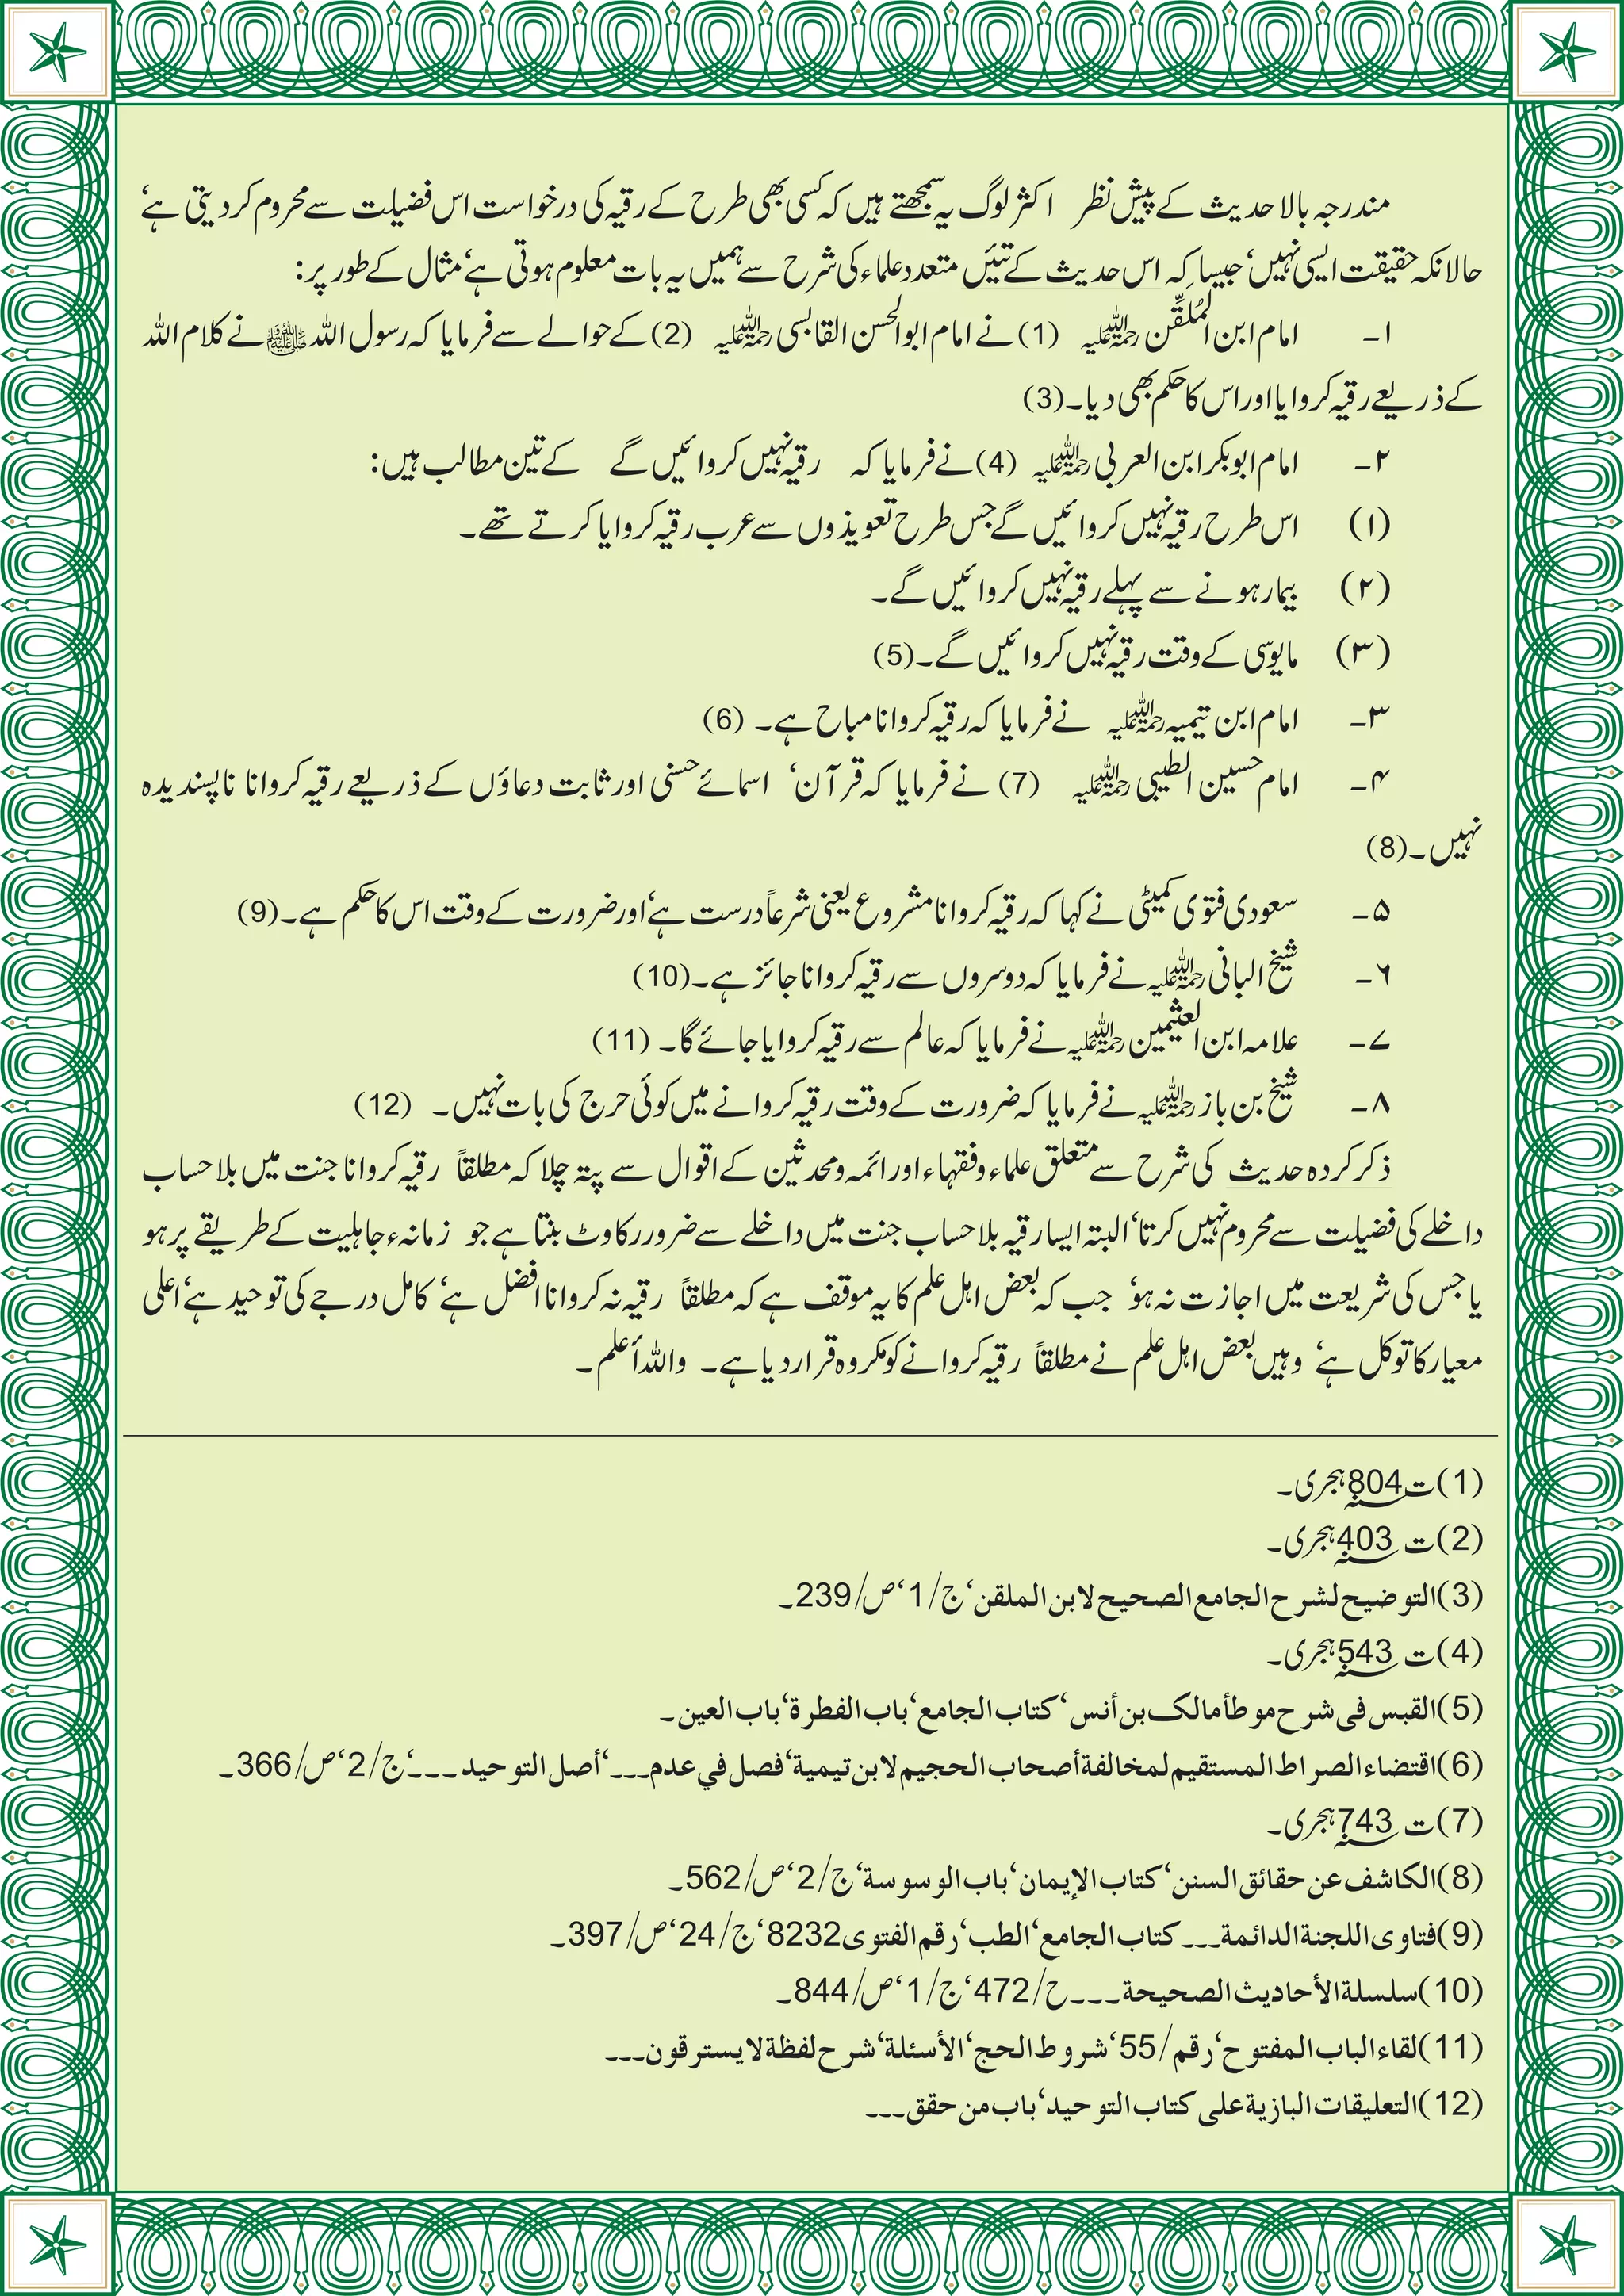 مندرجہ بالا حدیث کے پیش نظر اکثر لوگ یہ سمجھتے ہیں کہ کسی بھی طرح کے رقیہ کی درخواست اس فضیلت سے محروم کر دیتی ہے‘
حالانکہ حقیقت ایسی نہیں‘ جیسا کہ اس حدیث کے تئیں متعدد علماء کی شرح سے ہمیں یہ بات معلوم ہوتی ہے‘ مثال کے طور پر:
۱۔ امام ابن المُلَقِّن رحمۃ اللہ علیہ (1) نے امام ابوالحسن القابسی رحمۃ اللہ علیہ (2) کے حوالے سے فرمایا کہ رسول اللہ ﷺ نے کلام اللہ
کے ذریعے رقیہ کروایا اور اس کا حکم بھی دیا۔(3)
۲۔ امام ابوبکر ابن العربی رحمۃ اللہ علیہ (4) نے فرمایا کہ رقیہ نہیں کروائیں گے کے تین مطالب ہیں:
(۱) اس طرح رقیہ نہیں کروائیں گے جس طرح تعویذوں سے عرب رقیہ کروایا کرتے تھے۔
(۲) بیمار ہونے سے پہلے رقیہ نہیں کروائیں گے۔
(۳) مایوسی کے وقت رقیہ نہیں کروائیں گے۔(5)
۳۔ امام ابن تیمیہ رحمۃ اللہ علیہ نے فرمایا کہ رقیہ کروانا مباح ہے۔ (6)
۴۔ امام حسین الطیبی رحمۃ اللہ علیہ (7) نے فرمایا کہ قرآن‘ اسمائے حسنی اور ثابت دعاؤں کے ذریعے رقیہ کروانا ناپسندیدہ
نہیں۔(8)
۵۔ سعودی فتوی کمیٹی نے کہا کہ رقیہ کروانا مشروع یعنی شرعاً درست ہے‘ اور ضرورت کے وقت اس کا حکم ہے۔(9)
۶۔ شیخ البانی رحمۃ اللہ علیہ نے فرمایا کہ دوسروں سے رقیہ کروانا جائز ہے۔(10)
۷۔ علامہ ابن العثیمین رحمۃ اللہ علیہ نے فرمایا کہ عالم سے رقیہ کروایا جائے گا۔ (11)
۸۔ شیخ بن باز رحمۃ اللہ علیہ نے فرمایا کہ ضرورت کے وقت رقیہ کروانے میں کوئی حرج کی بات نہیں۔ (12)
ذکر کردہ حدیث کی شرح سے متعلق علماء وفقہاء اور ائمہ ومحدثین کے اقوال سے پتہ چلا کہ مطلقاً رقیہ کروانا جنت میں بلا حساب
داخلے کی فضیلت سے محروم نہیں کرتا‘ البتہ ایسا رقیہ بلا حساب جنت میں داخلے سے ضرور رکاوٹ بنتا ہے جو زمانہء جاہلیت کے طریقے پر ہو
یا جس کی شریعت میں اجازت نہ ہو‘ جب کہ بعض اہل علم کا یہ موقف ہے کہ مطلقاً رقیہ نہ کروانا افضل ہے‘ کامل درجے کی توحید ہے‘ اعلی
معیار کا توکل ہے‘ وہیں بعض اہل علم نے مطلقاً رقیہ کروانے کو مکروہ قرار دیا ہے۔ واللہ أعلم۔
(1) ت؁804ہجری۔
(2) ت؁403ہجری۔
(3) التوضیح لشرح الجامع الصحیح لابن الملقن‘ ج/1‘ ص/239۔
(4) ت؁543ہجری۔
(5) القبس فی شرح موطأ مالک بن أنس‘ کتاب الجامع‘ باب الفطرة‘ باب العین۔
(6) اقتضاء الصراط المستقیم لمخالفة أصحاب الجحیم لابن تیمیة‘ فصل في عدم۔۔۔‘ أصل التوحید۔۔۔‘ ج/2‘ ص/366۔
(7) ت؁743ہجری۔
(8) الکاشف عن حقائق السنن‘ کتاب الإیمان‘ باب الوسوسة‘ ج/2‘ ص/562۔
(9) فتاوی اللجنة الدائمة۔۔۔ کتاب الجامع‘ الطب‘ رقم الفتوی8232‘ ج/24‘ ص/397۔
(10) سلسلة الأحادیث الصحیحة۔۔۔ ح/472‘ ج/1‘ ص/844۔
(11) لقاء الباب المفتوح‘ رقم/55‘ شروط الحج‘ الأسئلة‘ شرح لفظة لا یسترقون۔۔۔
(12) التعلیقات البازیة علی کتاب التوحید‘ باب من حقق۔۔۔